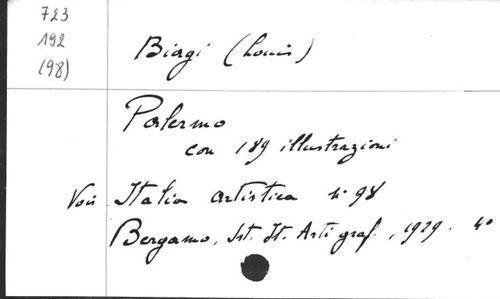 723
192
(98)
Biagi (Louis)
Palermo
con 189 illustrazioni
Voir Italia artistica n° 98
Bergamo, Ist. It. Arti graf., 1929. 4°